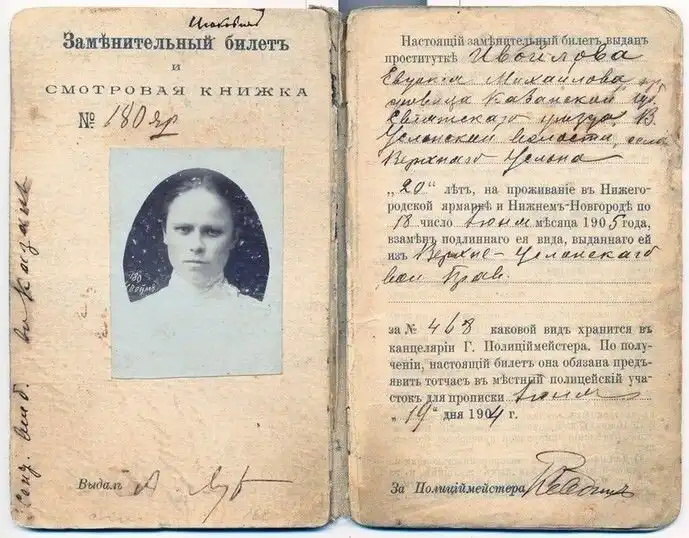 Замѣнительный билетъ
и
СМОТРОВАЯ КНИЖКА
№ 180 яр
Выдалъ
Настоящій замѣнительный билетъ выданъ
проституткѣ Ивойлова
Евдокія Михайлова, кр.
дѣвица Казанской губ.
Свіяжскаго уѣзда, В.
Услонской волости, села
Верхняго Услона
„20“ лѣтъ, на проживаніе въ Нижего-
родской ярмаркѣ и Нижнемъ-Новгородѣ по
18 число Іюня мѣсяца 1905 года,
взамѣнъ подлиннаго ея вида, выданнаго ей
изъ Верхне-Услонскаго
вол. Прав.
за № 468 каковой видъ хранится въ
канцеляріи Г. Полиціймейстера. По полу-
ченіи, настоящій билетъ она обязана предъ-
явить тотчасъ въ мѣстный полицейскій уча-
стокъ для прописки Іюня
„19“ дня 1904 г.
За Полиціймейстера